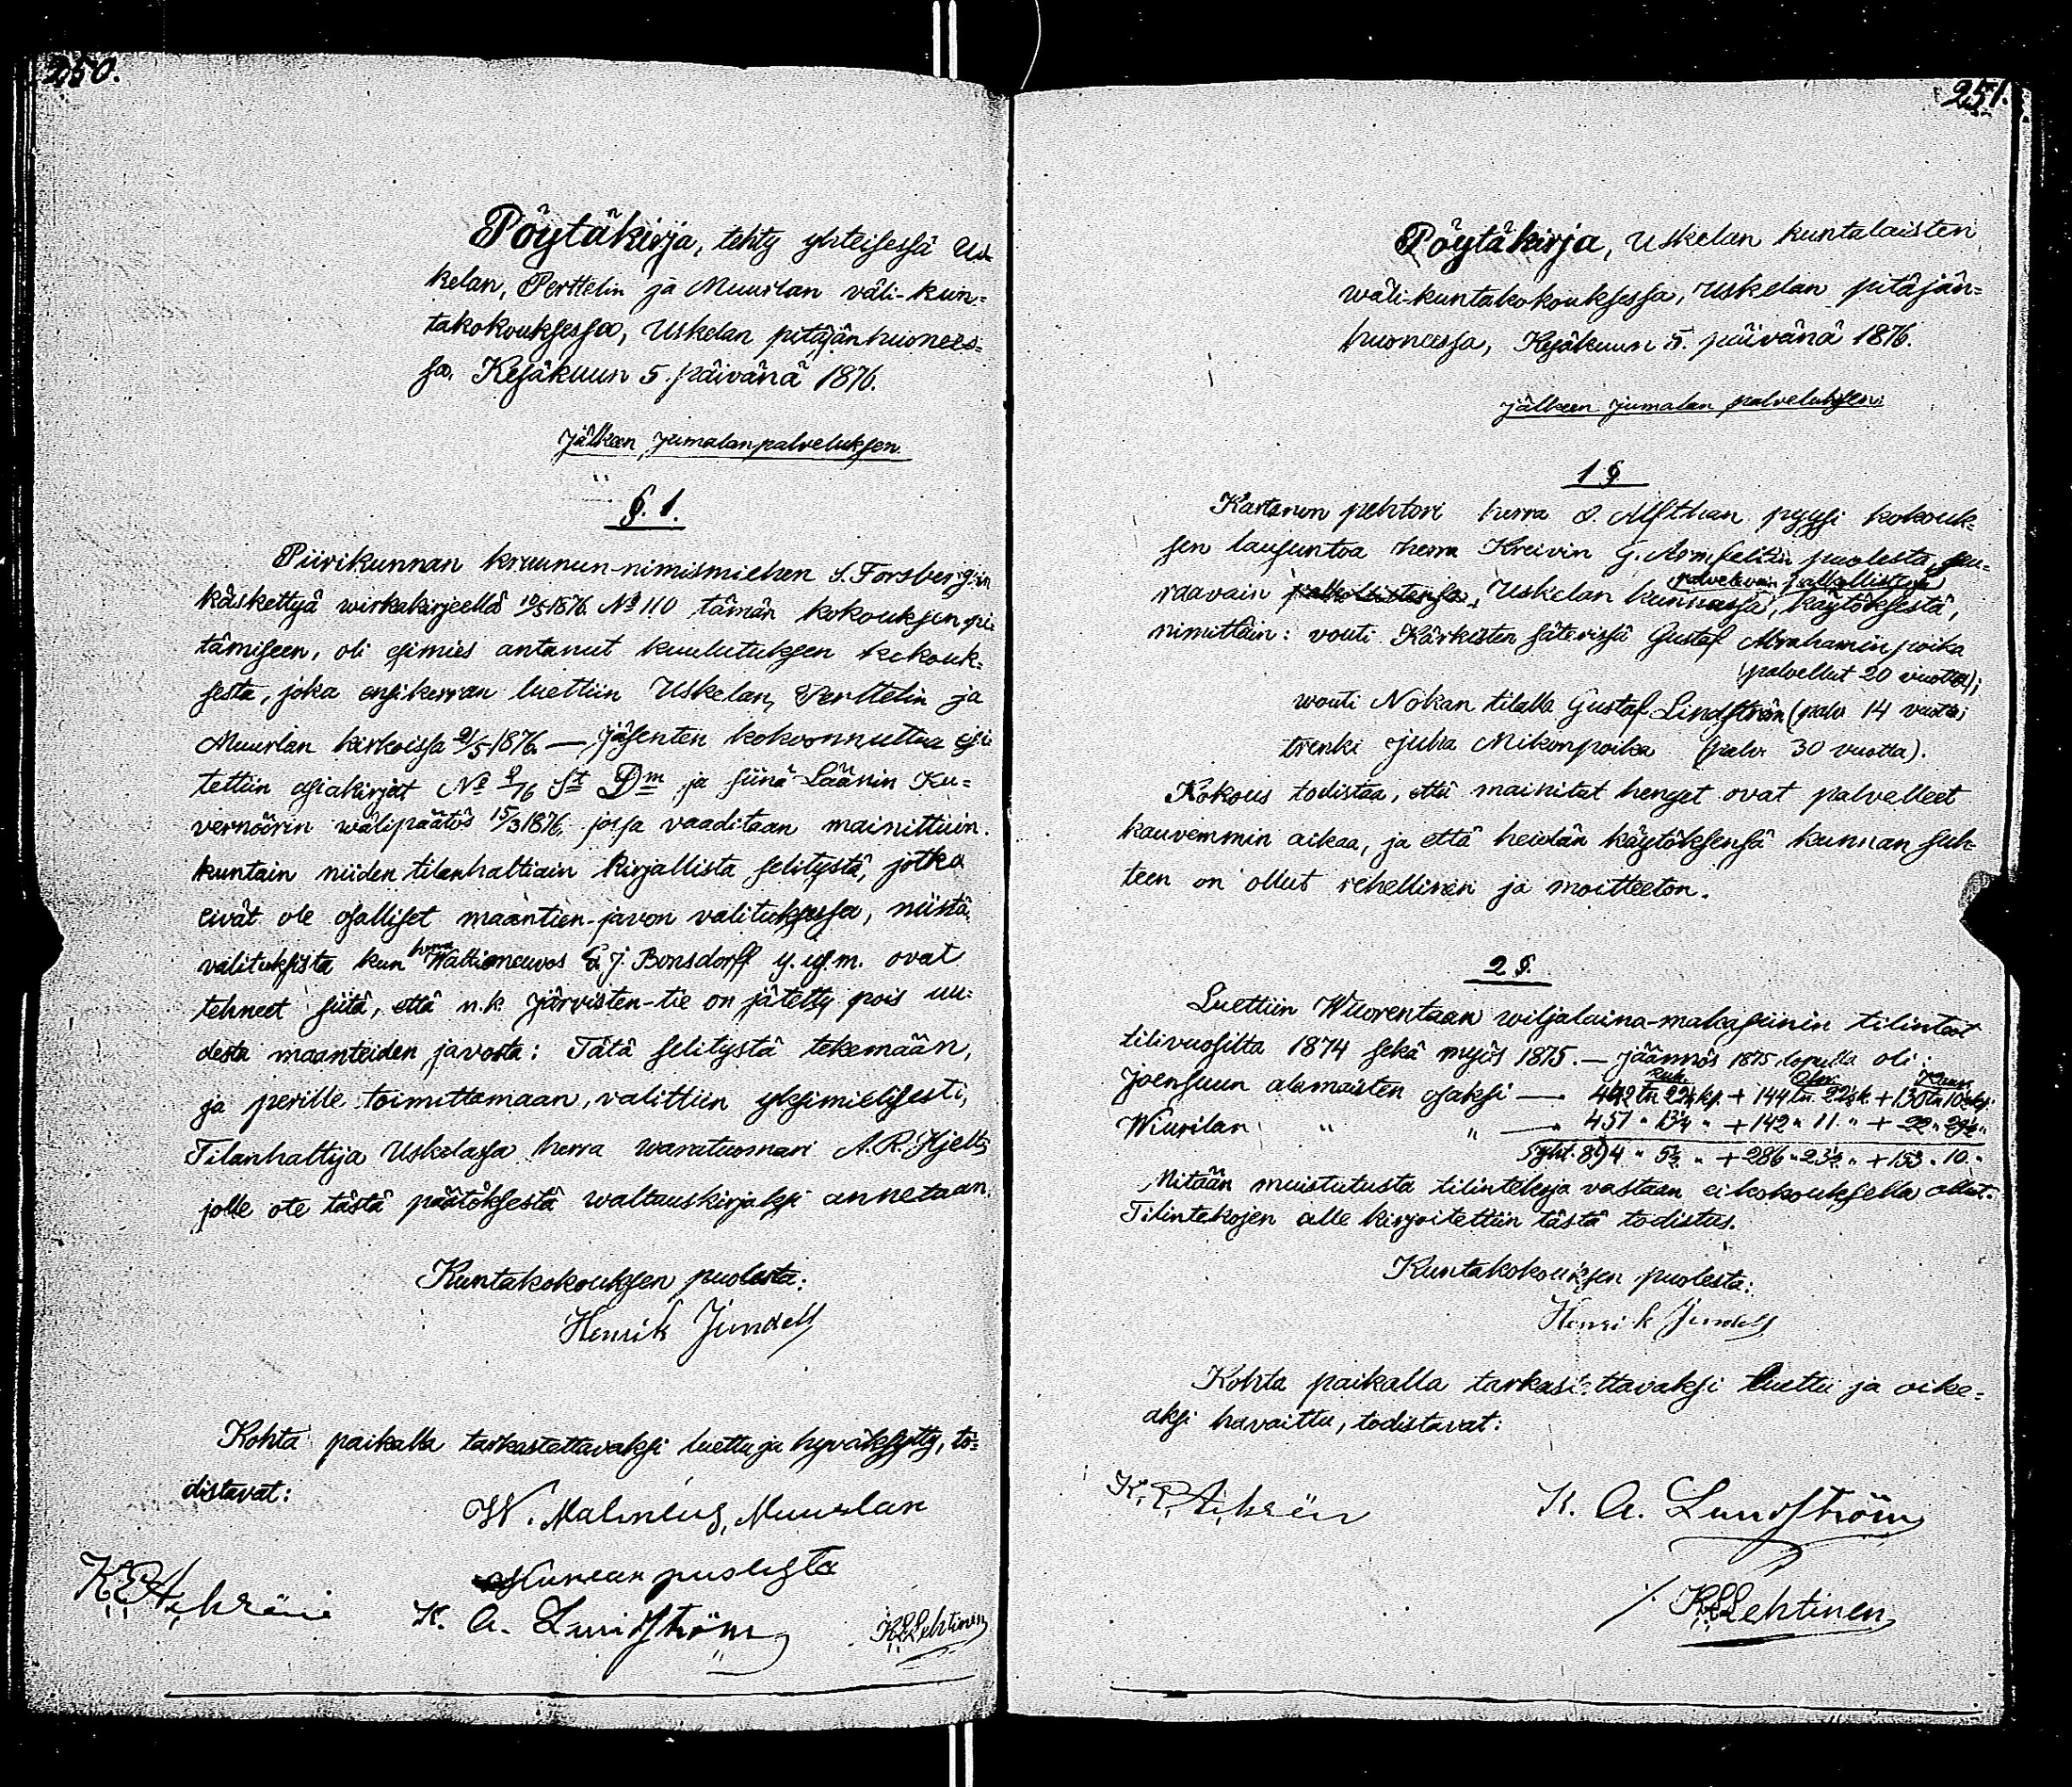 250.
Pöytäkirja, tehty yhteisessä Us-
kelan, Perttelin ja Muurlan väli-kun=
takokouksessa, Uskelan pitäjänhuonees=
sa, Kesäkuun 5. päivänä 1876.
Jälkeen Jumalanpalveluksen.
§. 1.
Piirikunnan kruunun-nimismiehen S. Forsberg:in
käskettyä wirkakirjeellä 10/5 1876 No 110 tämän kokouksen pi-
tämiseen, oli esimies antanut kuulutuksen kokouk=
sesta, joka ensikerran luettiin Uskelan, Perttelin ja
Muurlan kirkoissa 21/5 1876. — Jäsenten kokoonnuttua esi-
tettiin asiakirjat No /76 St Dm ja siinä Läänin Ku=
vernöörin wälipäätös 15/3 1876, jossa vaaditaan mainittuin
kuntain niiden tilanhaltiain kirjallista selitystä, jotka
eivät ole osalliset maantien-javon valituksessa, niistä
valituksista kun herra Waltioneuvos E. J. Bonsdorff y. m. ovat
tehneet siitä, että n.k. Järvisten-tie on jätetty pois uu=
desta maanteiden javosta: Tätä selitystä tekemään,
ja perille toimittamaan, valittiin yksimielisesti,
Tilanhaltija Uskelassa herra waratuomari A. R. Hjelt,
jolle ote tästä päätöksestä waltauskirjaksi annetaan.
Kuntakokouksen puolesta:
Henrik Jundell
Kohta paikalla tarkastettavaksi luettu ja hyväksytty, to=
distavat:
W. Malmlus, Muurlan
Kunnan puolesta
K. A. Lundström K. Lehtinen
251.
Pöytäkirja, Uskelan kuntalaisten
wäli-kuntakokouksessa, Uskelan pitäjän=
huoneessa, Kesäkuun 5. päivänä 1876.
Jälkeen Jumalan palveluksen:
1 §.
Kartanon pehtori herra O. Alfthan pyysi kokouk=
sen lausuntoa herra Kreivin G. Armfeltin puolesta, seu=
raavain palkollistensa, Uskelan kunnassa palvelevain palkollistensa, käytöksestä,
nimittäin: vouti Kärkisten säterissä Gustaf Abrahaminpoika
(palvellut 20 vuotta);
wouti Nokan tilalla Gustaf Lindström (palv. 14 vuotta;
trenki Juha Mikonpoika (palv. 30 vuotta).
Kokous todistaa, että mainitut henget ovat palvelleet
kauvemmin aikaa, ja että heidän käytöksensä kunnan suh=
teen on ollut rehellinen ja moitteeton.
2 §.
Luettiin Wuorentaan wiljalaina-makasiinin tilinteot
tilivuosilta 1874 sekä myös 1875. — Jäännös 1875 lopulla oli:
Ruk. Ohr. Kaur.
Joensuun alamaisten osaksi — 442 tn 22½ kp. + 144 tn. 22½ k. + 130 tn 10½ kp.
Wiurilan " " — 451 " 13¼ " + 142 " 11. " + 22 " 29½ "
Yht. 894 " 5½ " + 286 " 23½ " + 153 " 10. "
Mitään muistutusta tilintekoja vastaan ei kokouksella ollut.
Tilintekojen alle kirjoitettiin tästä todistus.
Kuntakokouksen puolesta:
Henrik Jundell
Kohta paikalla tarkasitettavaksi luettu ja oike=
aksi havaittu, todistavat:
K. A. Lundström
K. Lehtinen